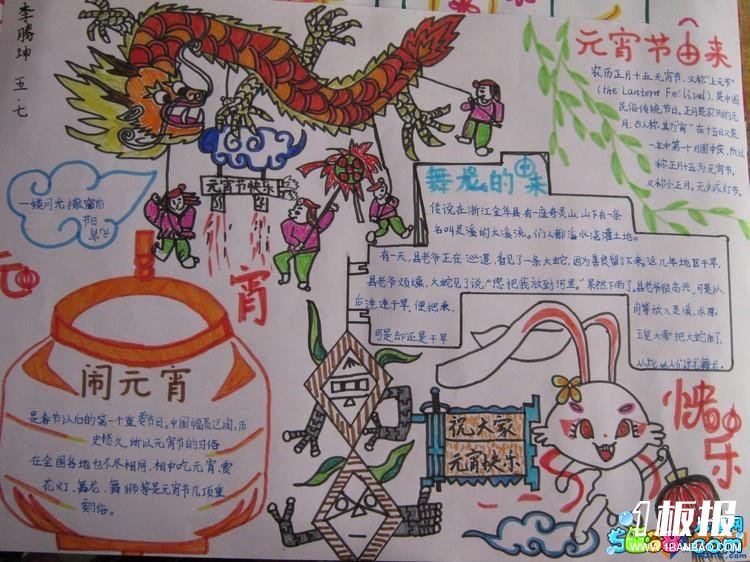 李腾坤 五.七
元宵节由来
农历正月十五元宵节,又称"上元节"
(the Lantern Festival),是中国
民俗传统节日。正月是农历的元
月,古人称其为"宵"
一年中第一个月圆中夜,所以
称正月十五为元宵节。
又称小正月、元夕或灯节。
元宵节快乐
舞龙的由来
传说在浙江金华县有一座奇灵山,山下有一条
名叫灵溪的大溪流。们人都溪水浇灌土地。
有一天,县老爷正在巡逻,看见了一条大蛇,因为善良留了下来。这几年地区干旱,
县老爷烦燥,大蛇见了说:"您把我放到河里。"果然下雨了。县老爷很高兴,可是以
后连连干旱,便把来,
可是却还是干旱
一缕月光撒窗前
元
宵
快乐
闹元宵
是春节以后的第一个重要节日。中国幅员辽阔,历
史悠久,所以元宵节的习俗
在全国各地也不尽相同,相中吃元宵、赏
花灯、舞龙、舞狮等是元宵节几项重
要习俗。
祝大家
元宵快乐
1板报
WWW.1BANBAO.COM